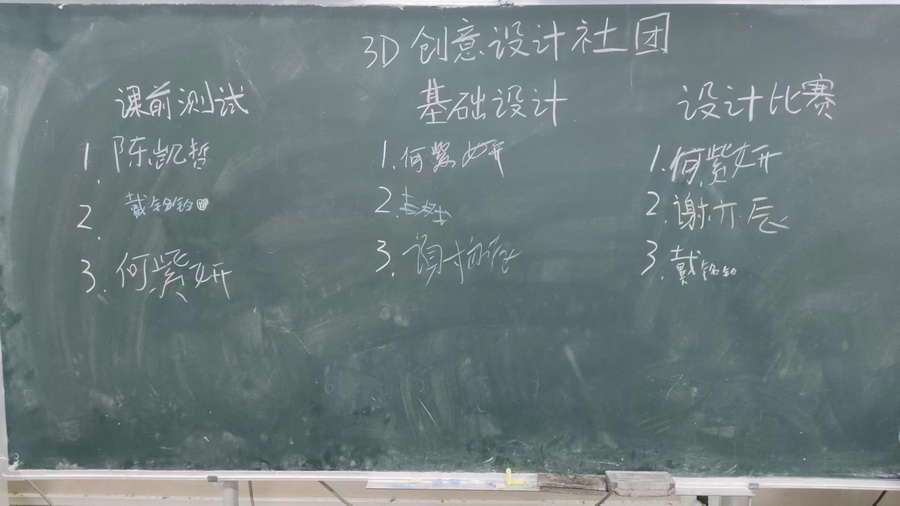 3D创意设计社团
课前测试
1.陈凯哲
2.戴
3.何紫妍
基础设计
1.何紫妍
2.
3.
设计比赛
1.何紫妍
2.谢亦辰
3.戴